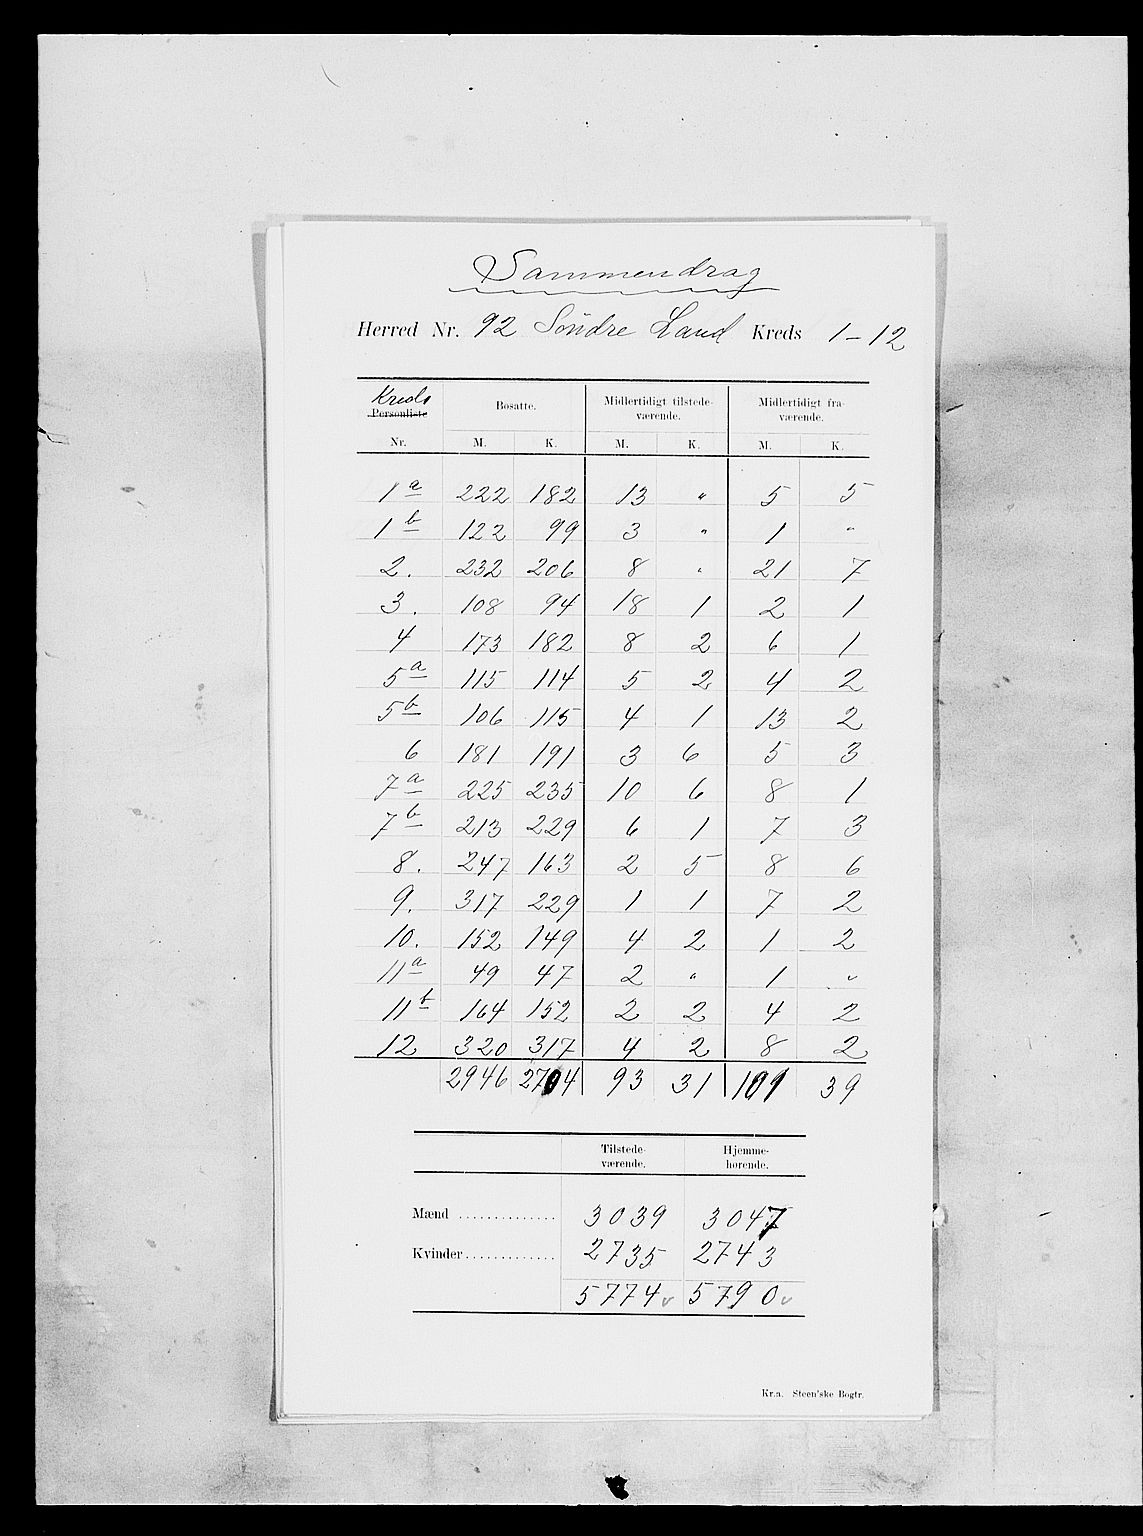 Sammendrag
Herred Nr. 92 Söndre Land Kreds 1-12
Kreds
Personliste
Nr.
Bosatte.
M. K.
Midlertidigt tilstede-
værende.
M. K.
Midlertidigt fra-
værende.
M. K.
1a 222 182 13 " 5 5
1b 122 99 3 " 1 "
2. 232 206 8 " 21 7
3. 108 94 18 1 2 1
4 173 182 8 2 6 1
5a 115 114 5 2 4 2
5b 106 115 4 1 13 2
6 181 191 3 6 5 3
7a 225 235 10 6 8 1
7b 213 229 6 1 7 3
8. 247 163 2 5 8 6
9. 317 229 1 1 7 2
10. 152 149 4 2 1 2
11a 49 47 2 " 1 "
11b 164 152 2 2 4 2
12 320 317 4 2 8 2
2946 2704 93 31 101 39
Tilstede-
værende.
Hjemme-
hørende.
Mænd .............. 3039 3047
Kvinder ............. 2735 2743
5774 v 5790 v
Kr.a. Steen'ske Bogtr.